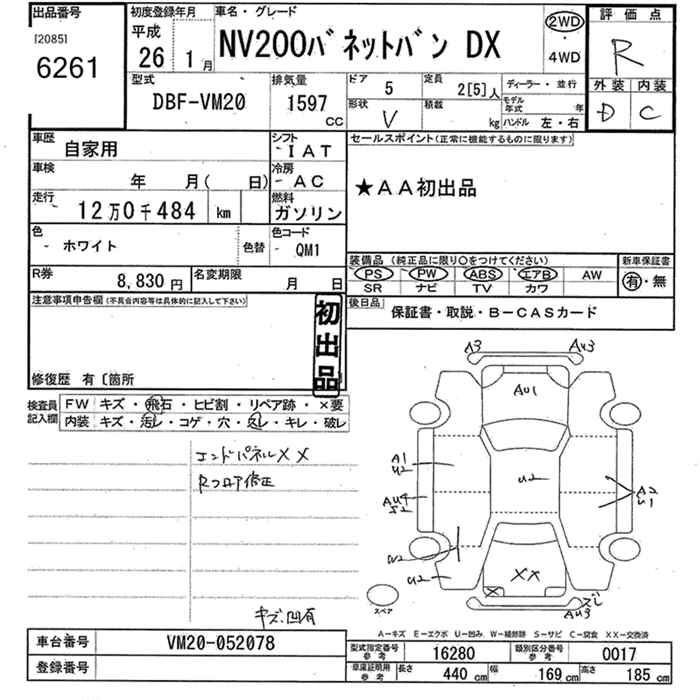 出品番号
[2085]
6261
初度登録年月
平成
26 1月
車名・グレード
NV200バネットバン DX
2WD
・
4WD
評価点
R
外装 内装
D C
型式
DBF-VM20
排気量
1597
CC
ドア
5
定員
2[5]人
ディーラー・並行
形状
V
積載
kg
モデル年式 年
ハンドル 左・右
車歴
自家用
シフト
- IAT
車検
年 月( 日)
冷房
- AC
走行
12万0千484 km
燃料
ガソリン
色
- ホワイト
色替
色コード
- QM1
R券
8,830 円
名変期限
月 日
セールスポイント(正常に機能するものに限ります)
★AA初出品
装備品(純正品に限り○をつけてください)
PS PW ABS エアB AW
SR ナビ TV カワ
新車保証書
有・無
後日品
保証書・取説・B-CASカード
注意事項申告欄(不具合内容等は具体的に記入して下さい)
初出品
修復歴 有〔箇所
検査員記入欄
FW キズ・飛石・ヒビ割・リペア跡・×要
内装 キズ・汚レ・コゲ・穴・スレ・キレ・破レ
エンドパネルXX
Rフロア修正
キズ凹有
A3
AU3
AU1
A1
U2
U2
A2
U1
AU4
S2
U2
U2
XX
X
ズレ
AU3
スペア
A-キズ E-エクボ U-凹み W-補修跡 S-サビ C-腐食 XX-交換済
車台番号
VM20-052078
登録番号
型式指定番号 参考
16280
類別区分番号 参考
0017
車庫証明用 参考
長さ
440 cm
幅
169 cm
高さ
185 cm